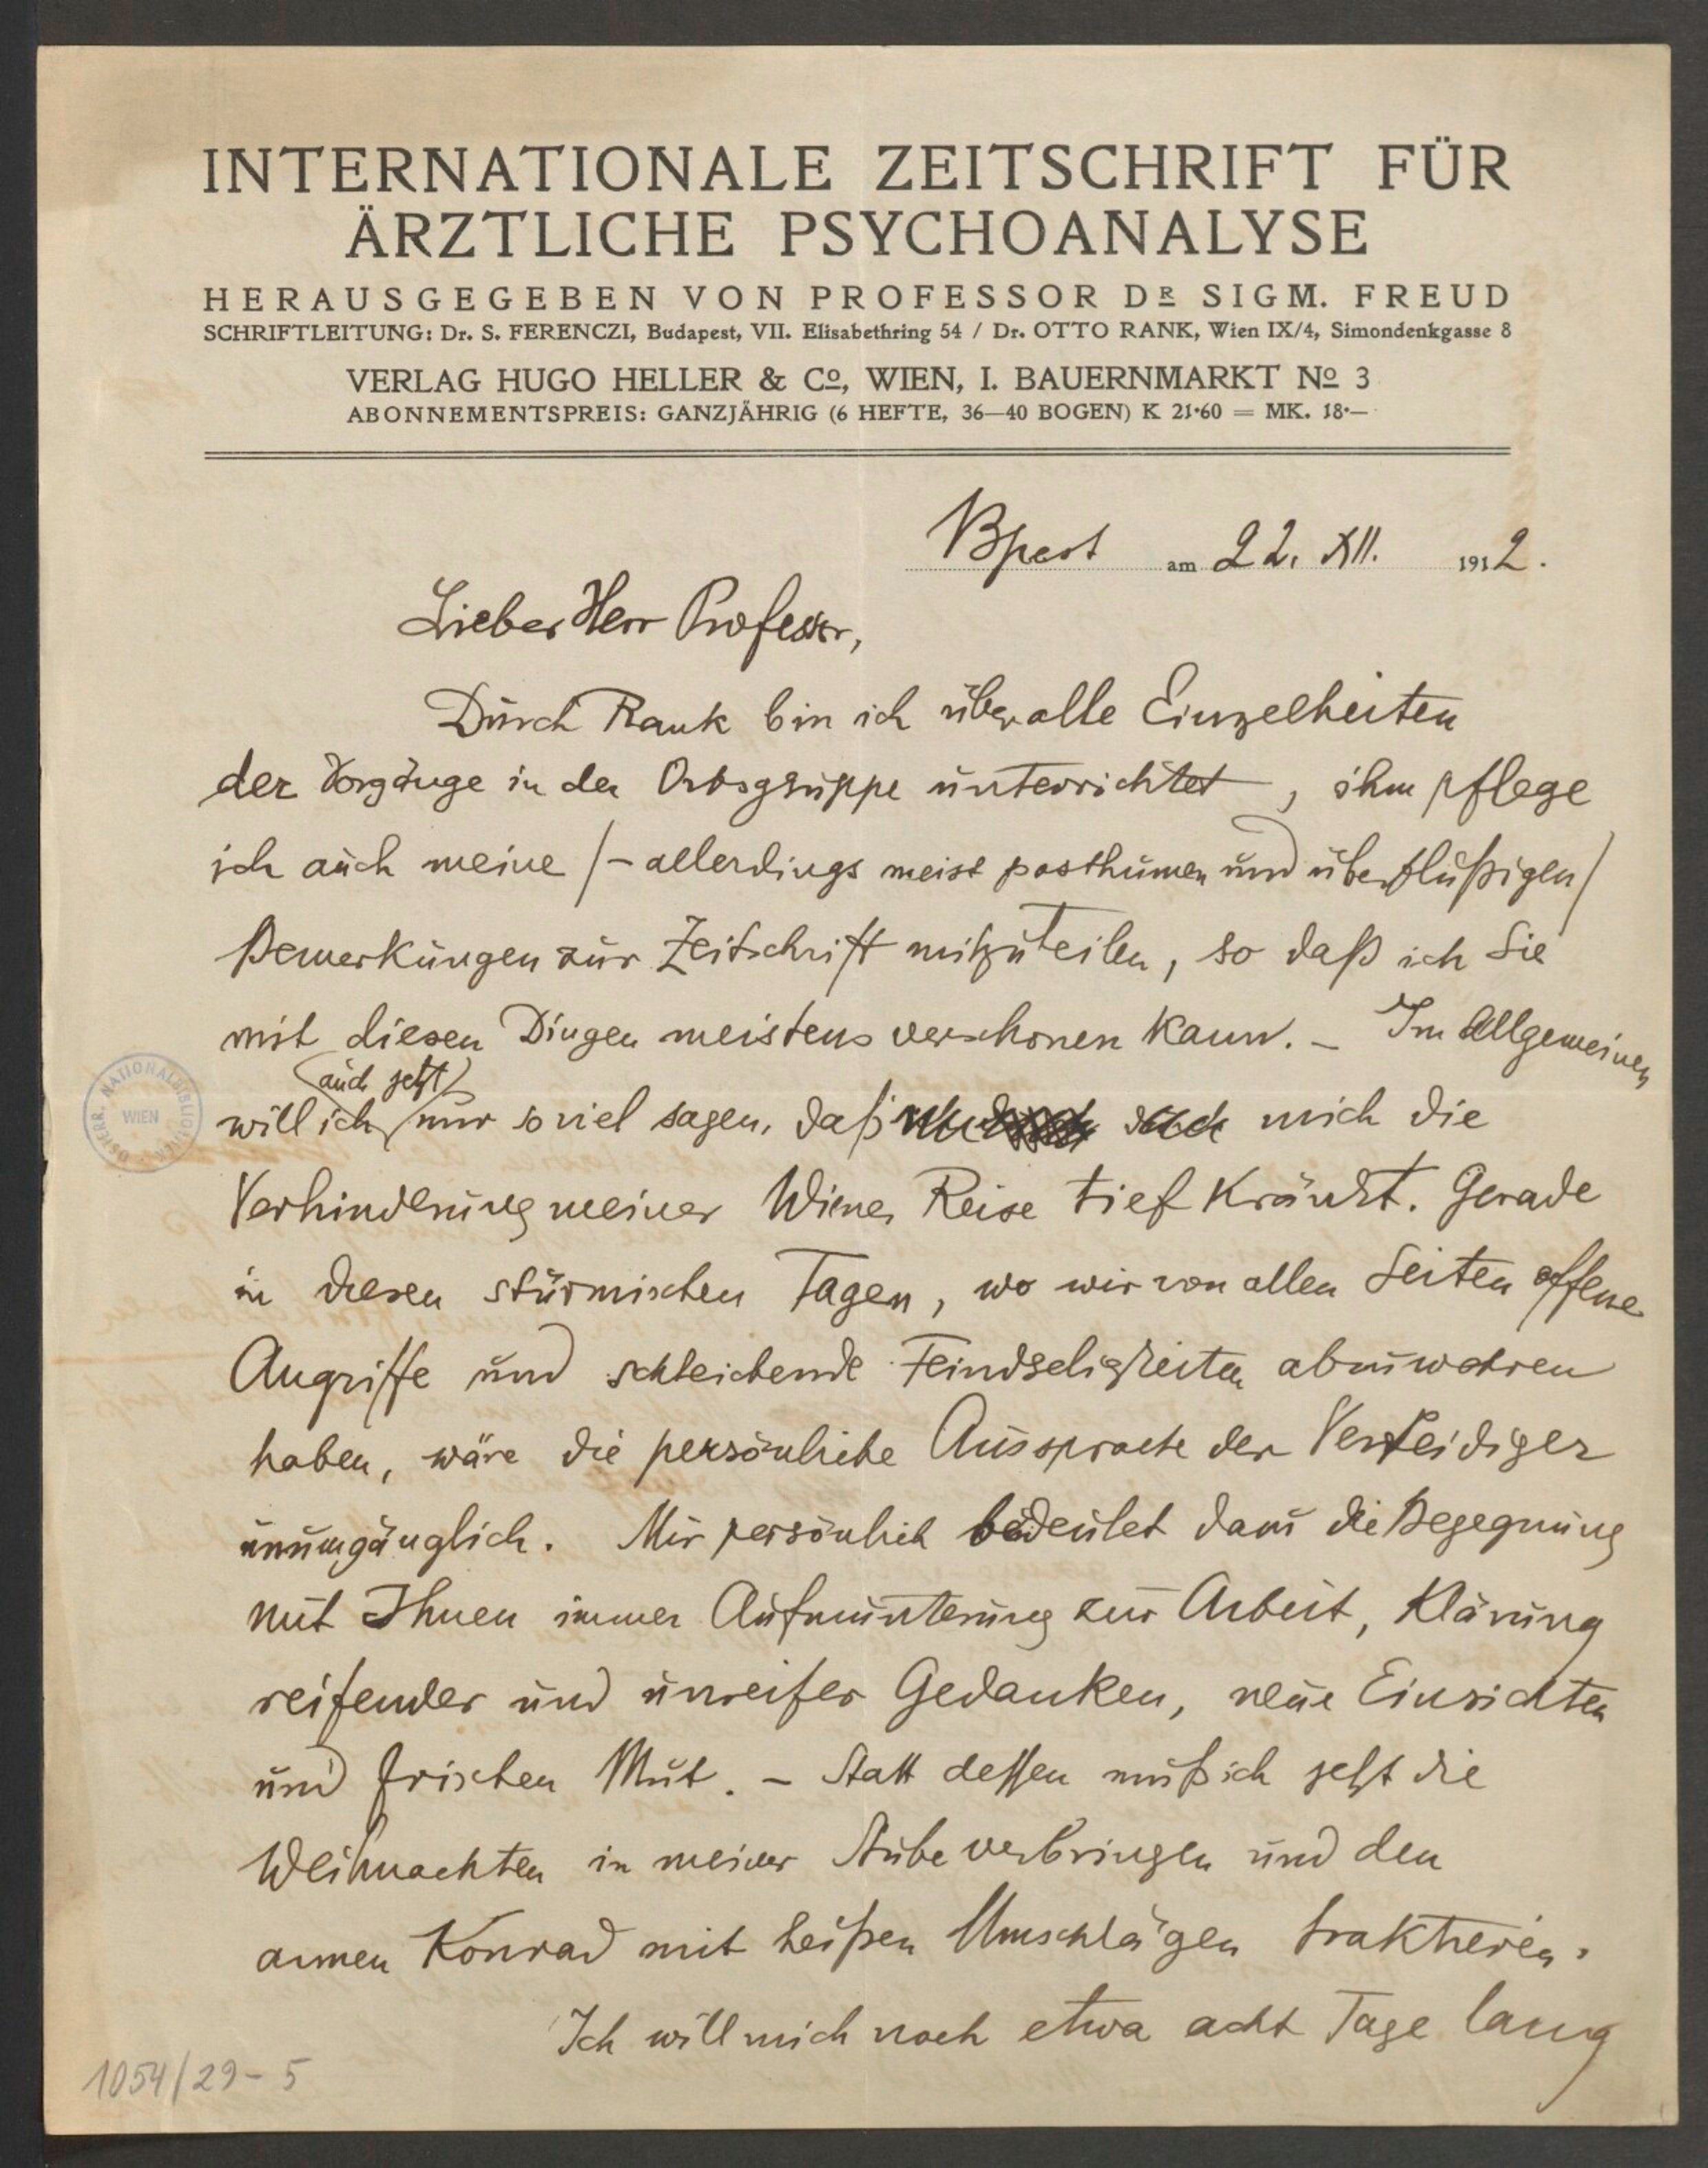 INTERNATIONALE ZEITSCHRIFT FÜR
ÄRZTLICHE PSYCHOANALYSE
HERAUSGEGEBEN VON PROFESSOR DR SIGM. FREUD
SCHRIFTLEITUNG: Dr. S. FERENCZI, Budapest, VII. Elisabethring 54 / Dr. OTTO RANK, Wien IX/4, Simondenkgasse 8
VERLAG HUGO HELLER & Co, WIEN, I. BAUERNMARKT No 3
ABONNEMENTSPREIS: GANZJÄHRIG (6 HEFTE, 36—40 BOGEN) K 21·60 = MK. 18·—
Bpest am 22. XII. 1912.
Lieber Herr Professor,
Durch Rank bin ich über alle Einzelheiten
der Vorgänge in der Ortsgruppe unterrichtet, ihm pflege
ich auch meine /– allerdings meist posthumen und überflüßigen/
Bemerkungen zur Zeitschrift mitzuteilen, so daß ich Sie
mit diesen Dingen meistens verschonen kann. – Im Allgemeinen
auch jetzt
will ich nur so viel sagen, daß mich die
Verhinderung meiner Wiener Reise tief kränkt. Gerade
in diesen stürmischen Tagen, wo wir von allen Seiten offene
Angriffe und schleichende Feindseligkeiten abzuwehren
haben, wäre die persönliche Aussprache der Verteidiger
unumgänglich. Mir persönlich bedeutet dazu die Begegnung
mit Ihnen immer Aufmunterung zur Arbeit, Klärung
reifender und unreifer Gedanken, neue Einsichten
und frischen Mut. – Statt dessen muß ich jetzt die
Weihnachten in meiner Stube verbringen und den
armen Konrad mit heißen Umschlägen traktieren.
Ich will mich noch etwa acht Tage lang
ÖSTERR. NATIONALBIBLIOTHEK
WIEN
1054/29-5